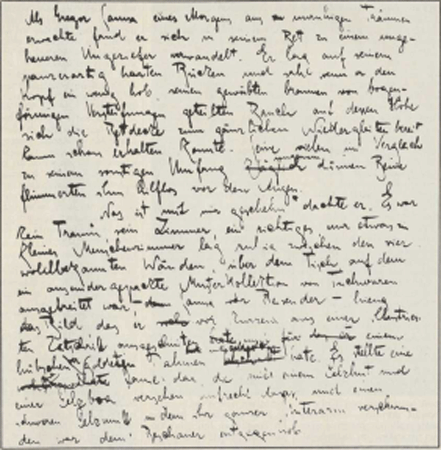 Als Gregor Samsa eines Morgens aus unruhigen Träumen
erwachte fand er sich in seinem Bet zu einem unge-
heueren Ungeziefer verwandelt. Er lag auf seinem
panzerartig harten Rücken und sah wenn er den
Kopf ein wenig hob seinen gewölbten braunen von bogen-
förmigen Versteifungen geteilten Bauch auf dessen Höhe
sich die Bettdecke zum gänzlichen Niedergleiten bereit
kaum erhalten konnte. Seine vielen im Vergleich
zu seinem sonstigen Umfang dünnen Beine
flimmerten ihm hilflos vor den Augen.
Was ist mit mir geschehn" dachte er. Es war
kein Traum, sein Zimmer, ein richtiges, nur etwas zu
kleines Menschenzimmer lag ruhig zwischen den vier
wohlbekannten Wänden, über dem Tisch auf dem
auseinandergepackte Musterkollektion von Tuchwaren
ausgebreitet war – Samsa war Reisender – hieng
das Bild das er vor kurzem aus einer illustrier-
ten Zeitschrift ausgeschnitten einem
hübschen vergoldeten Rahmen hatte. Es stellte eine
Dame dar, die mit einem Pelzhut und
einer Pelzboa versehen aufrecht dasaß und einen
schweren Pelzmuff in dem ihr ganzer Unterarm verschwun-
den war dem Beschauer entgegenhob